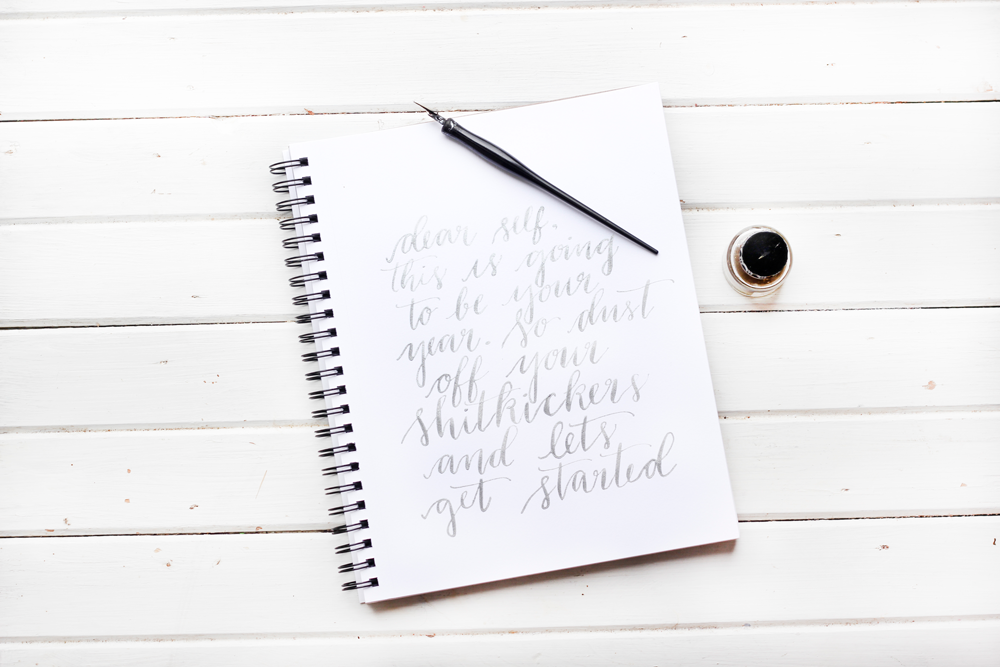 dear self,
this is going
to be your
year. so dust
off your
shitkickers
and lets
get started